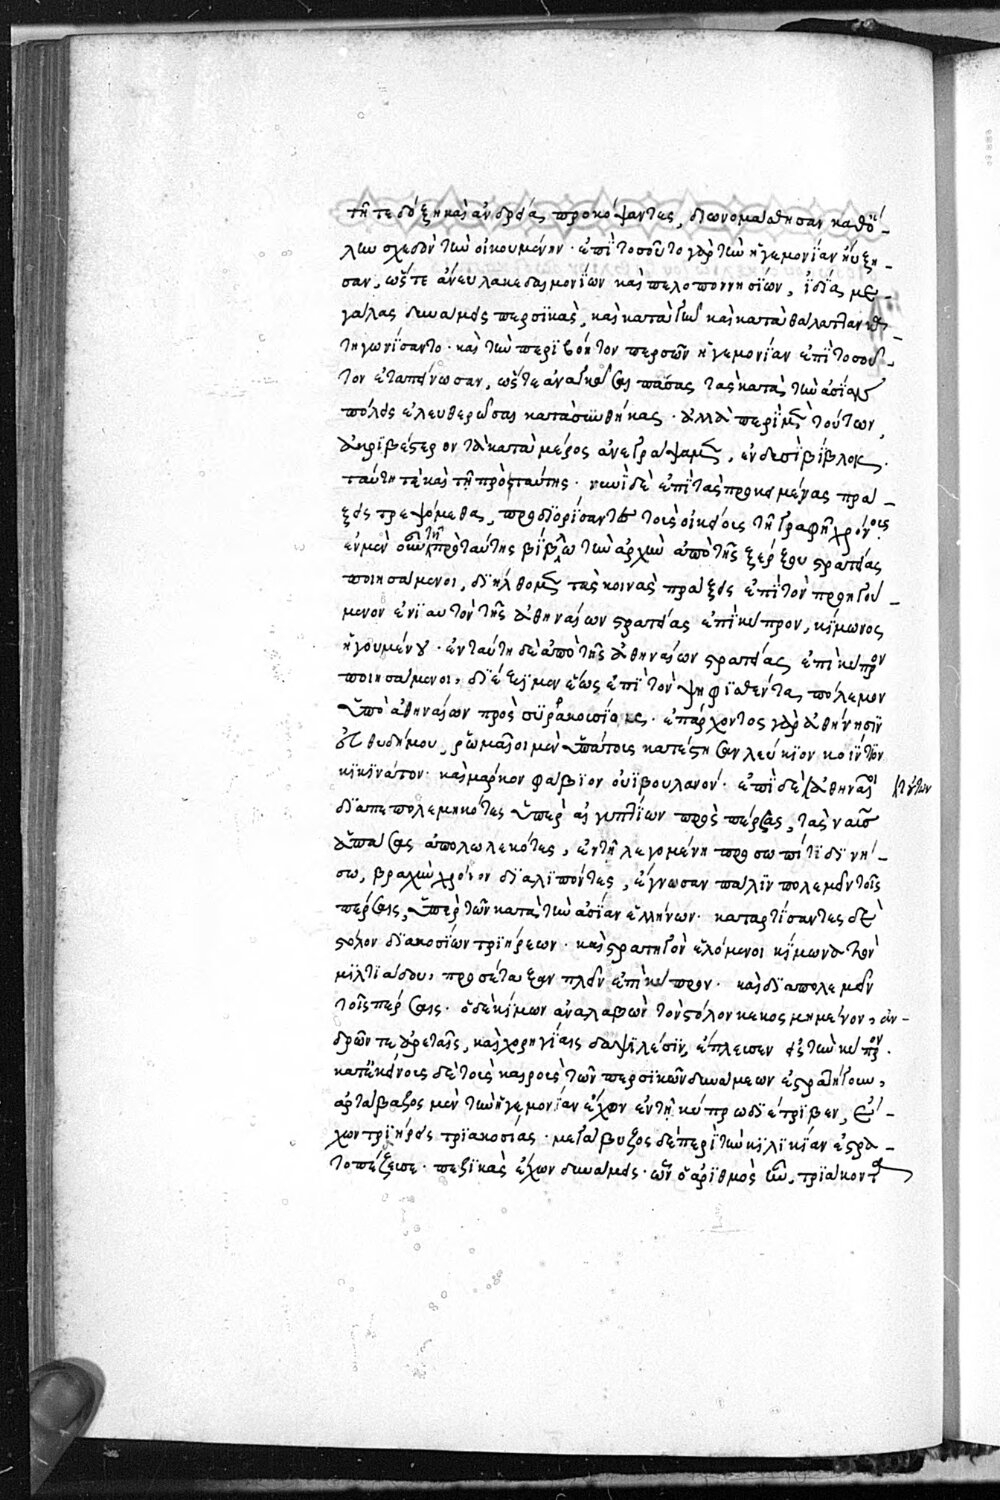 τῆ τε δόξη καὶ ἀνδρεία προκόψαντες, διωνομάσθησαν καθ' ὅ-
λην σχεδὸν τὴν οἰκουμένην· ἐπὶ τοσοῦτο γὰρ τὴν ἡγεμονίαν ηὔξη
σαν, ὥστε ἄνευ λακεδαιμονίων καὶ πελοποννησίων, ἰδία με-
γάλας δυνάμεις περσικὰς, καὶ κατὰ γῆν καὶ κατὰ θάλατταν κα-
τηγωνίσαντο· καὶ τὴν περιβόητον περσῶν ἡγεμονίαν ἐπὶ τοσοῦ-
τον ἐταπείνωσαν, ὥστε ἀναγκάσαι πάσας τὰς κατὰ τὴν ἀσίαν
πόλεις ἐλευθερῶσαι κατὰ συνθήκας· ἀλλὰ περὶ μὲν τούτων,
ἀκριβέστερον τὰ κατὰ μέρος ἀνεγράψαμεν, ἐν δυσὶ βίβλοις.
ταύτη τὲ καὶ τῆ πρὸ ταύτης· νυνὶ δὲ ἐπὶ τὰς προκειμένας πρά-
ξεις τρεψόμεθα, προσδιορίσαντες τοὺς οἰκείοις τῆ γραφῆ χρόνοις.
ἐν μὲν οὖν τῆ πρὸ ταύτης βίβλω τὴν ἀρχὴν ἀπὸ τῆς ξέρξου στρατείας
ποιησάμενοι, διήλθομεν τὰς κοινὰς πράξεις ἐπὶ τὸν προηγού-
μενον ἐνιαυτὸν τῆς ἀθηναίων στρατείας ἐπὶ κύπρον, κίμωνος
ἡγουμένου· ἐν ταύτη δὲ ἀπὸ τῆς ἀθηναίων στρατείας ἐπὶ κύπρον
ποιησάμενοι, διέξιμεν ἕως ἐπὶ τὸν ψηφισθέντας πόλεμον
ὑπὸ ἀθηναίων πρὸς συρακουσίους. ἐπ' ἄρχοντος γὰρ ἀθήνησιν
εὐθυδήμου, ῥωμαῖοι μὲν ὑπάτοις κατέστησαν λεύκιον κοίντον
κικινάτον· καὶ μάρκον φάβιον οὐιβουλανόν· ἐπὶ δὲ τούτων ἀθηναῖοι
διαπεπολεμηκότες ὑπὲρ αἰγυπτίων πρὸς πέρσας, τὰς ναῦς
ἁπάσας ἀπολωλεκότες, ἐν τῆ λεγομένη προσωπίτιδι νή-
σω, βραχὺν χρόνον διαλιπόντες, ἔγνωσαν πάλιν πολεμεῖν τοῖς
πέρσαις, ὑπὲρ τῶν κατὰ τὴν ἀσίαν ἑλλήνων· καταρτίσαντες δὲ
στόλον διακοσίων τριήρεων· καὶ στρατηγὸν ἑλόμενοι κίμωνα τὸν
μιλτιάδου, προσέταξαν πλεῖν ἐπὶ κύπρον· καὶ διαπολεμεῖν
τοῖς πέρσαις· ὁ δὲ κίμων ἀναλαβὼν τὸν στόλον κεκοσμημένον, ἀν-
δρῶν τε ἀρεταῖς, καὶ χορηγίαις δαψιλέσιν, ἔπλευσεν εἰς τὴν κύπρον.
κατ' ἐκείνους δὲ τοὺς καιροὺς τῶν περσικῶν δυνάμεων ἐστρατήγουν,
ἀρτάβαζος μὲν τὴν ἡγεμονίαν ἔχων ἐν τῆ κύπρω διέτριβεν, ἔ-
χων τριήρεις τριακοσίας· μεγάβυζος δὲ περὶ τὴν κιλικίαν ἐστρα-
τοπέδευε· πεζικὰς ἔχων δυνάμεις· ὧν ὁ ἀριθμὸς ἦν, τριάκοντα